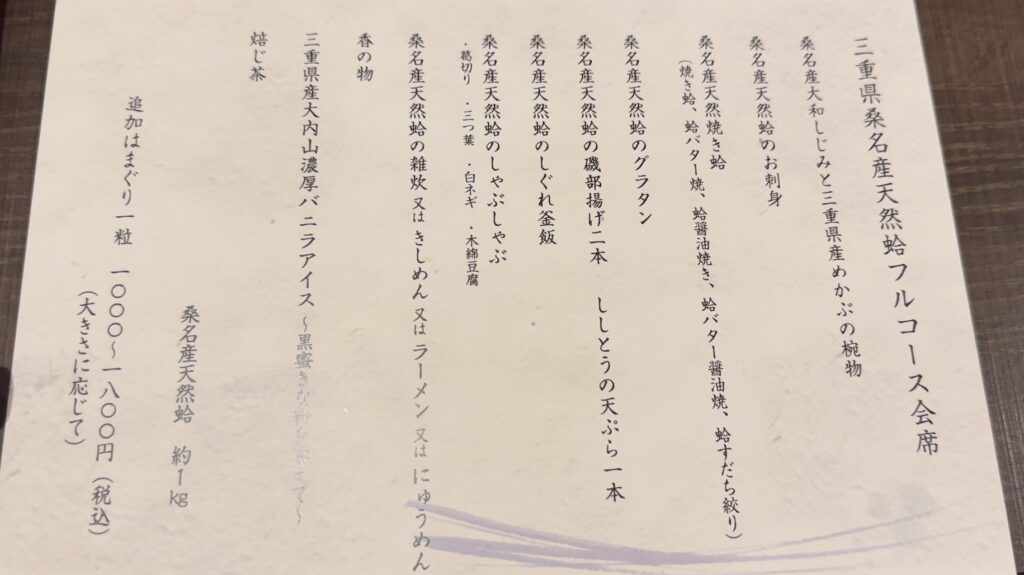 三重県桑名産天然蛤フルコース会席
桑名産大和しじみと三重県産めかぶの椀物
桑名産天然蛤のお刺身
桑名産天然焼き蛤
(焼き蛤、蛤バター焼、蛤醤油焼き、蛤バター醤油焼、蛤すだち絞り)
桑名産天然蛤のグラタン
桑名産天然蛤の磯部揚げ二本 ししとうの天ぷら一本
桑名産天然蛤のしぐれ釜飯
桑名産天然蛤のしゃぶしゃぶ
・葛切り ・三つ葉 ・白ネギ ・木綿豆腐
桑名産天然蛤の雑炊 又は きしめん 又は ラーメン 又は にゅうめん
香の物
三重県産大内山濃厚バニラアイス ~黒蜜きな粉を添えて~
焙じ茶
桑名産天然蛤 約1kg
追加はまぐり一粒 一〇〇〇~一八〇〇円(税込)
(大きさに応じて)